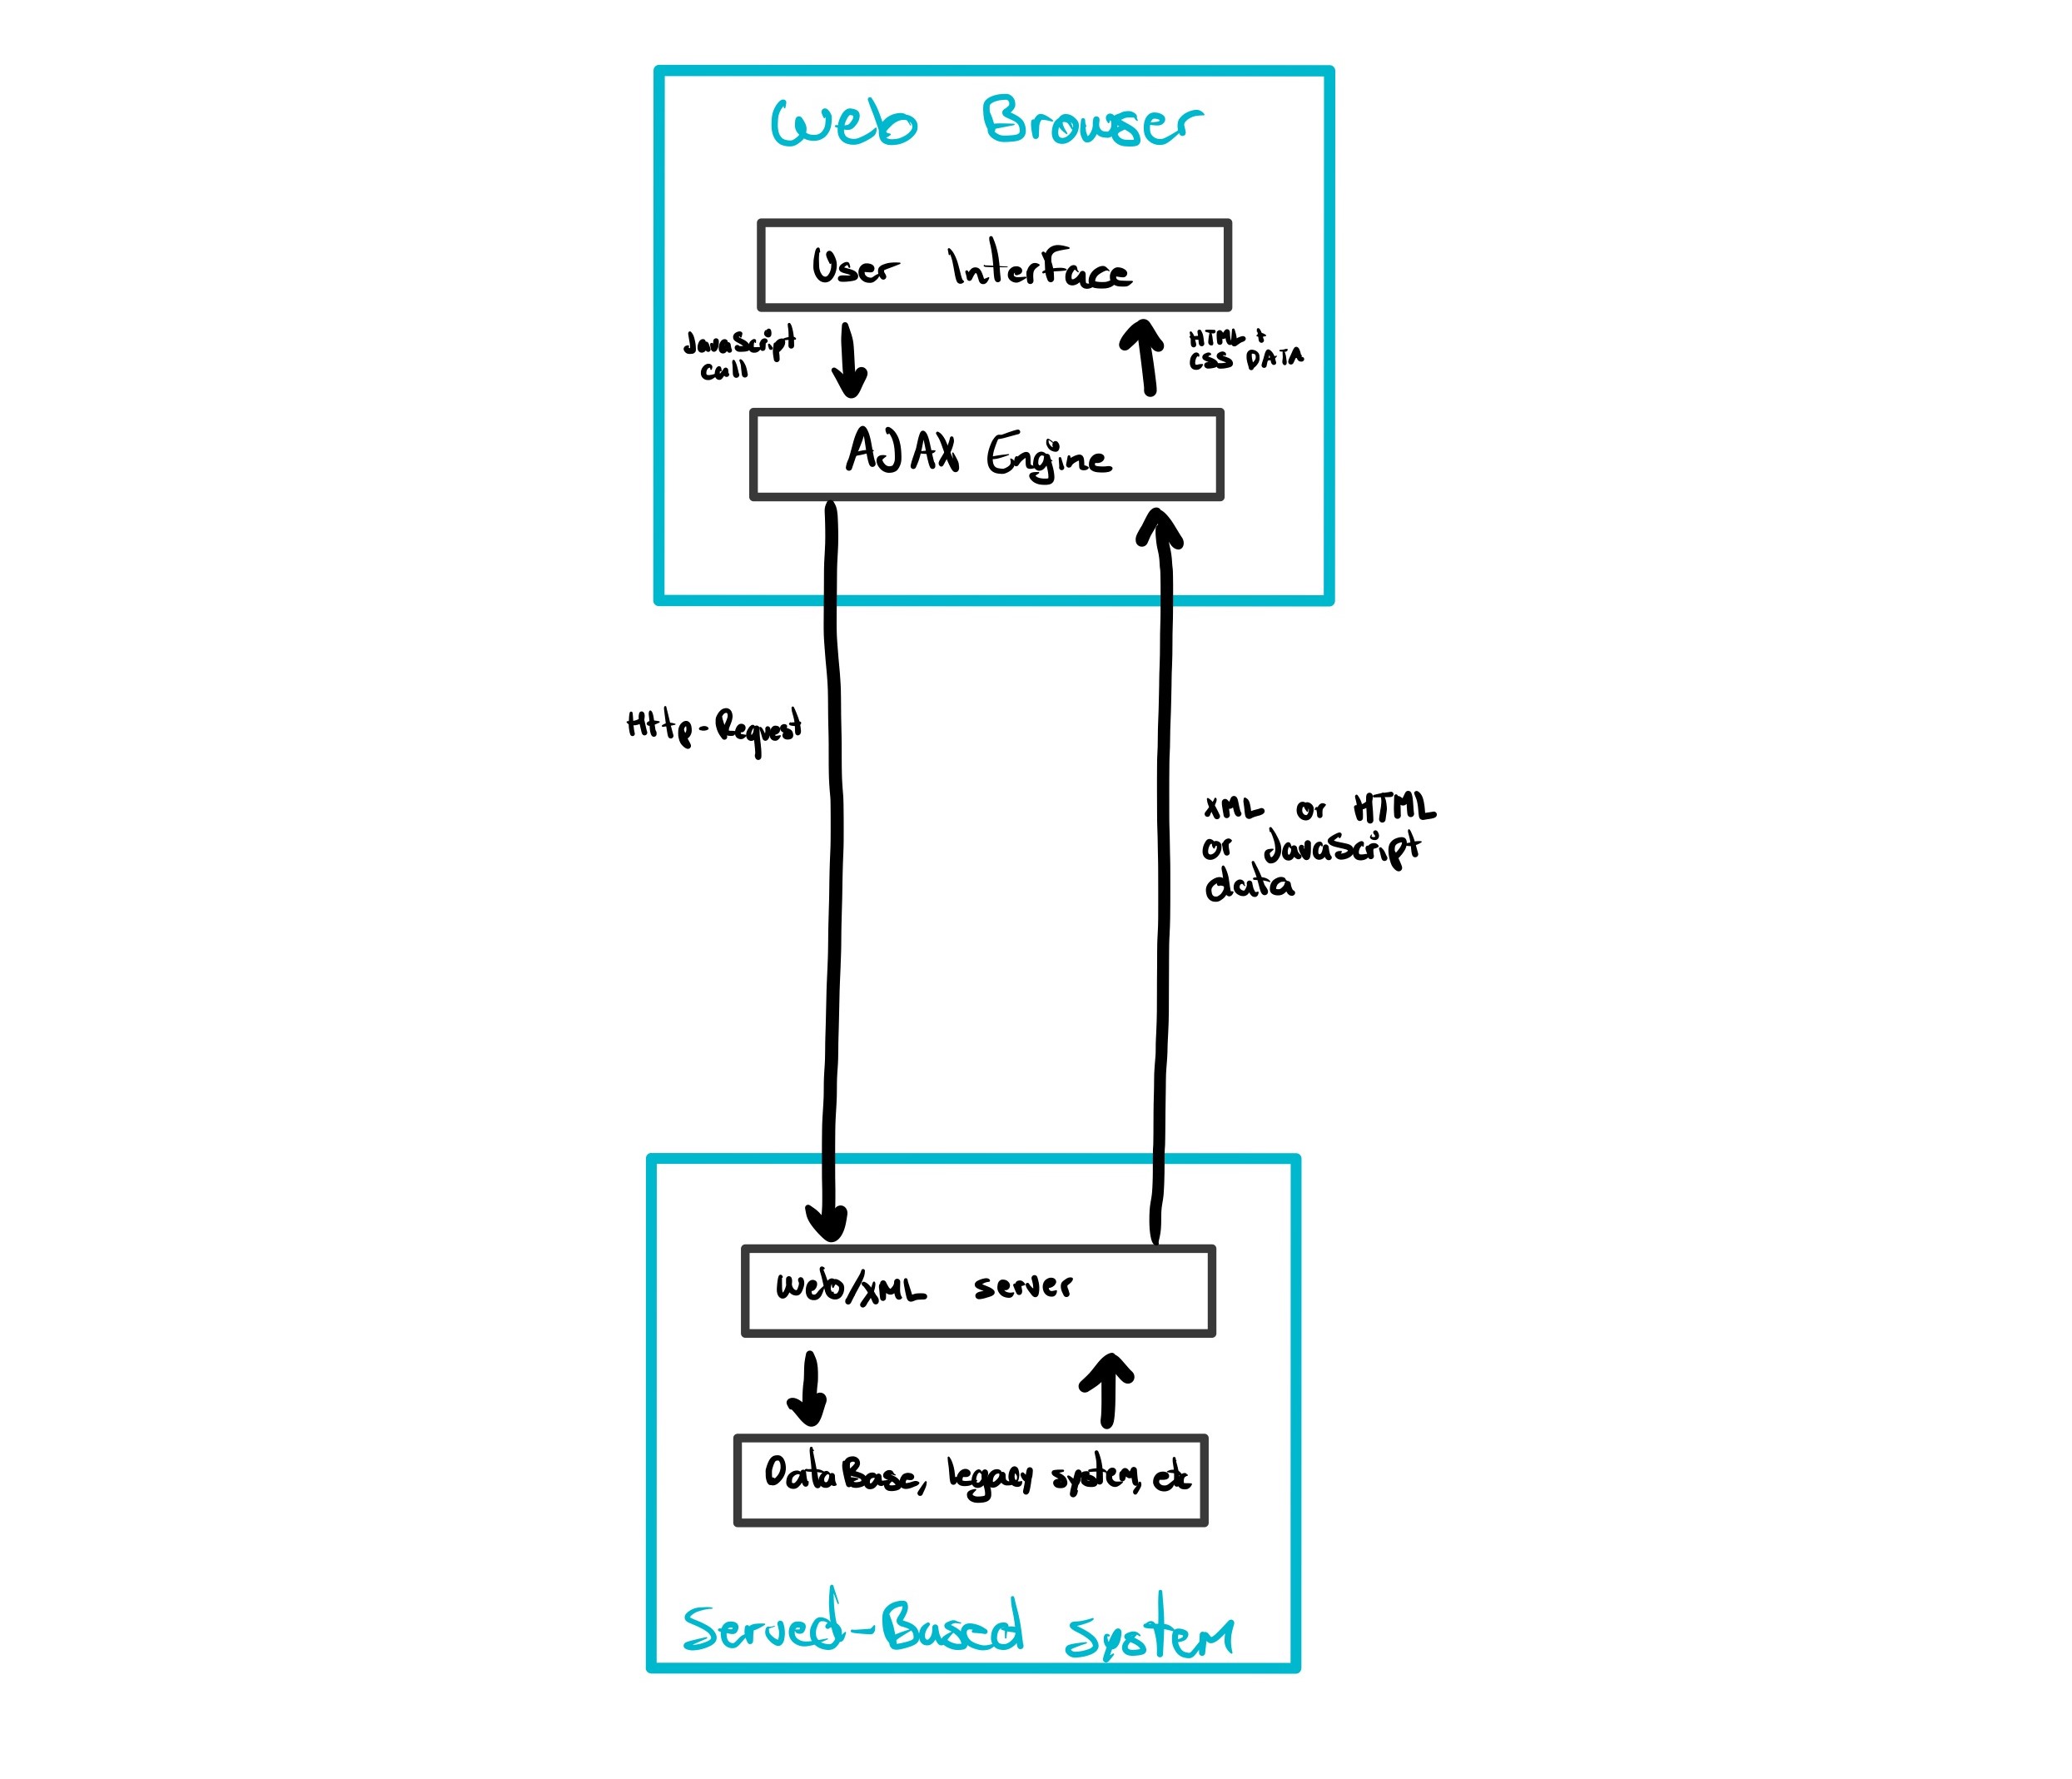 Web Browser
User Interface
JavaScript
call
HTML +
CSS DATA
AJAX Engine
Http-Request
XML or HTML
or JavaScript
data
Web/XML server
DataBase, legacy system, etc
Served-Based system